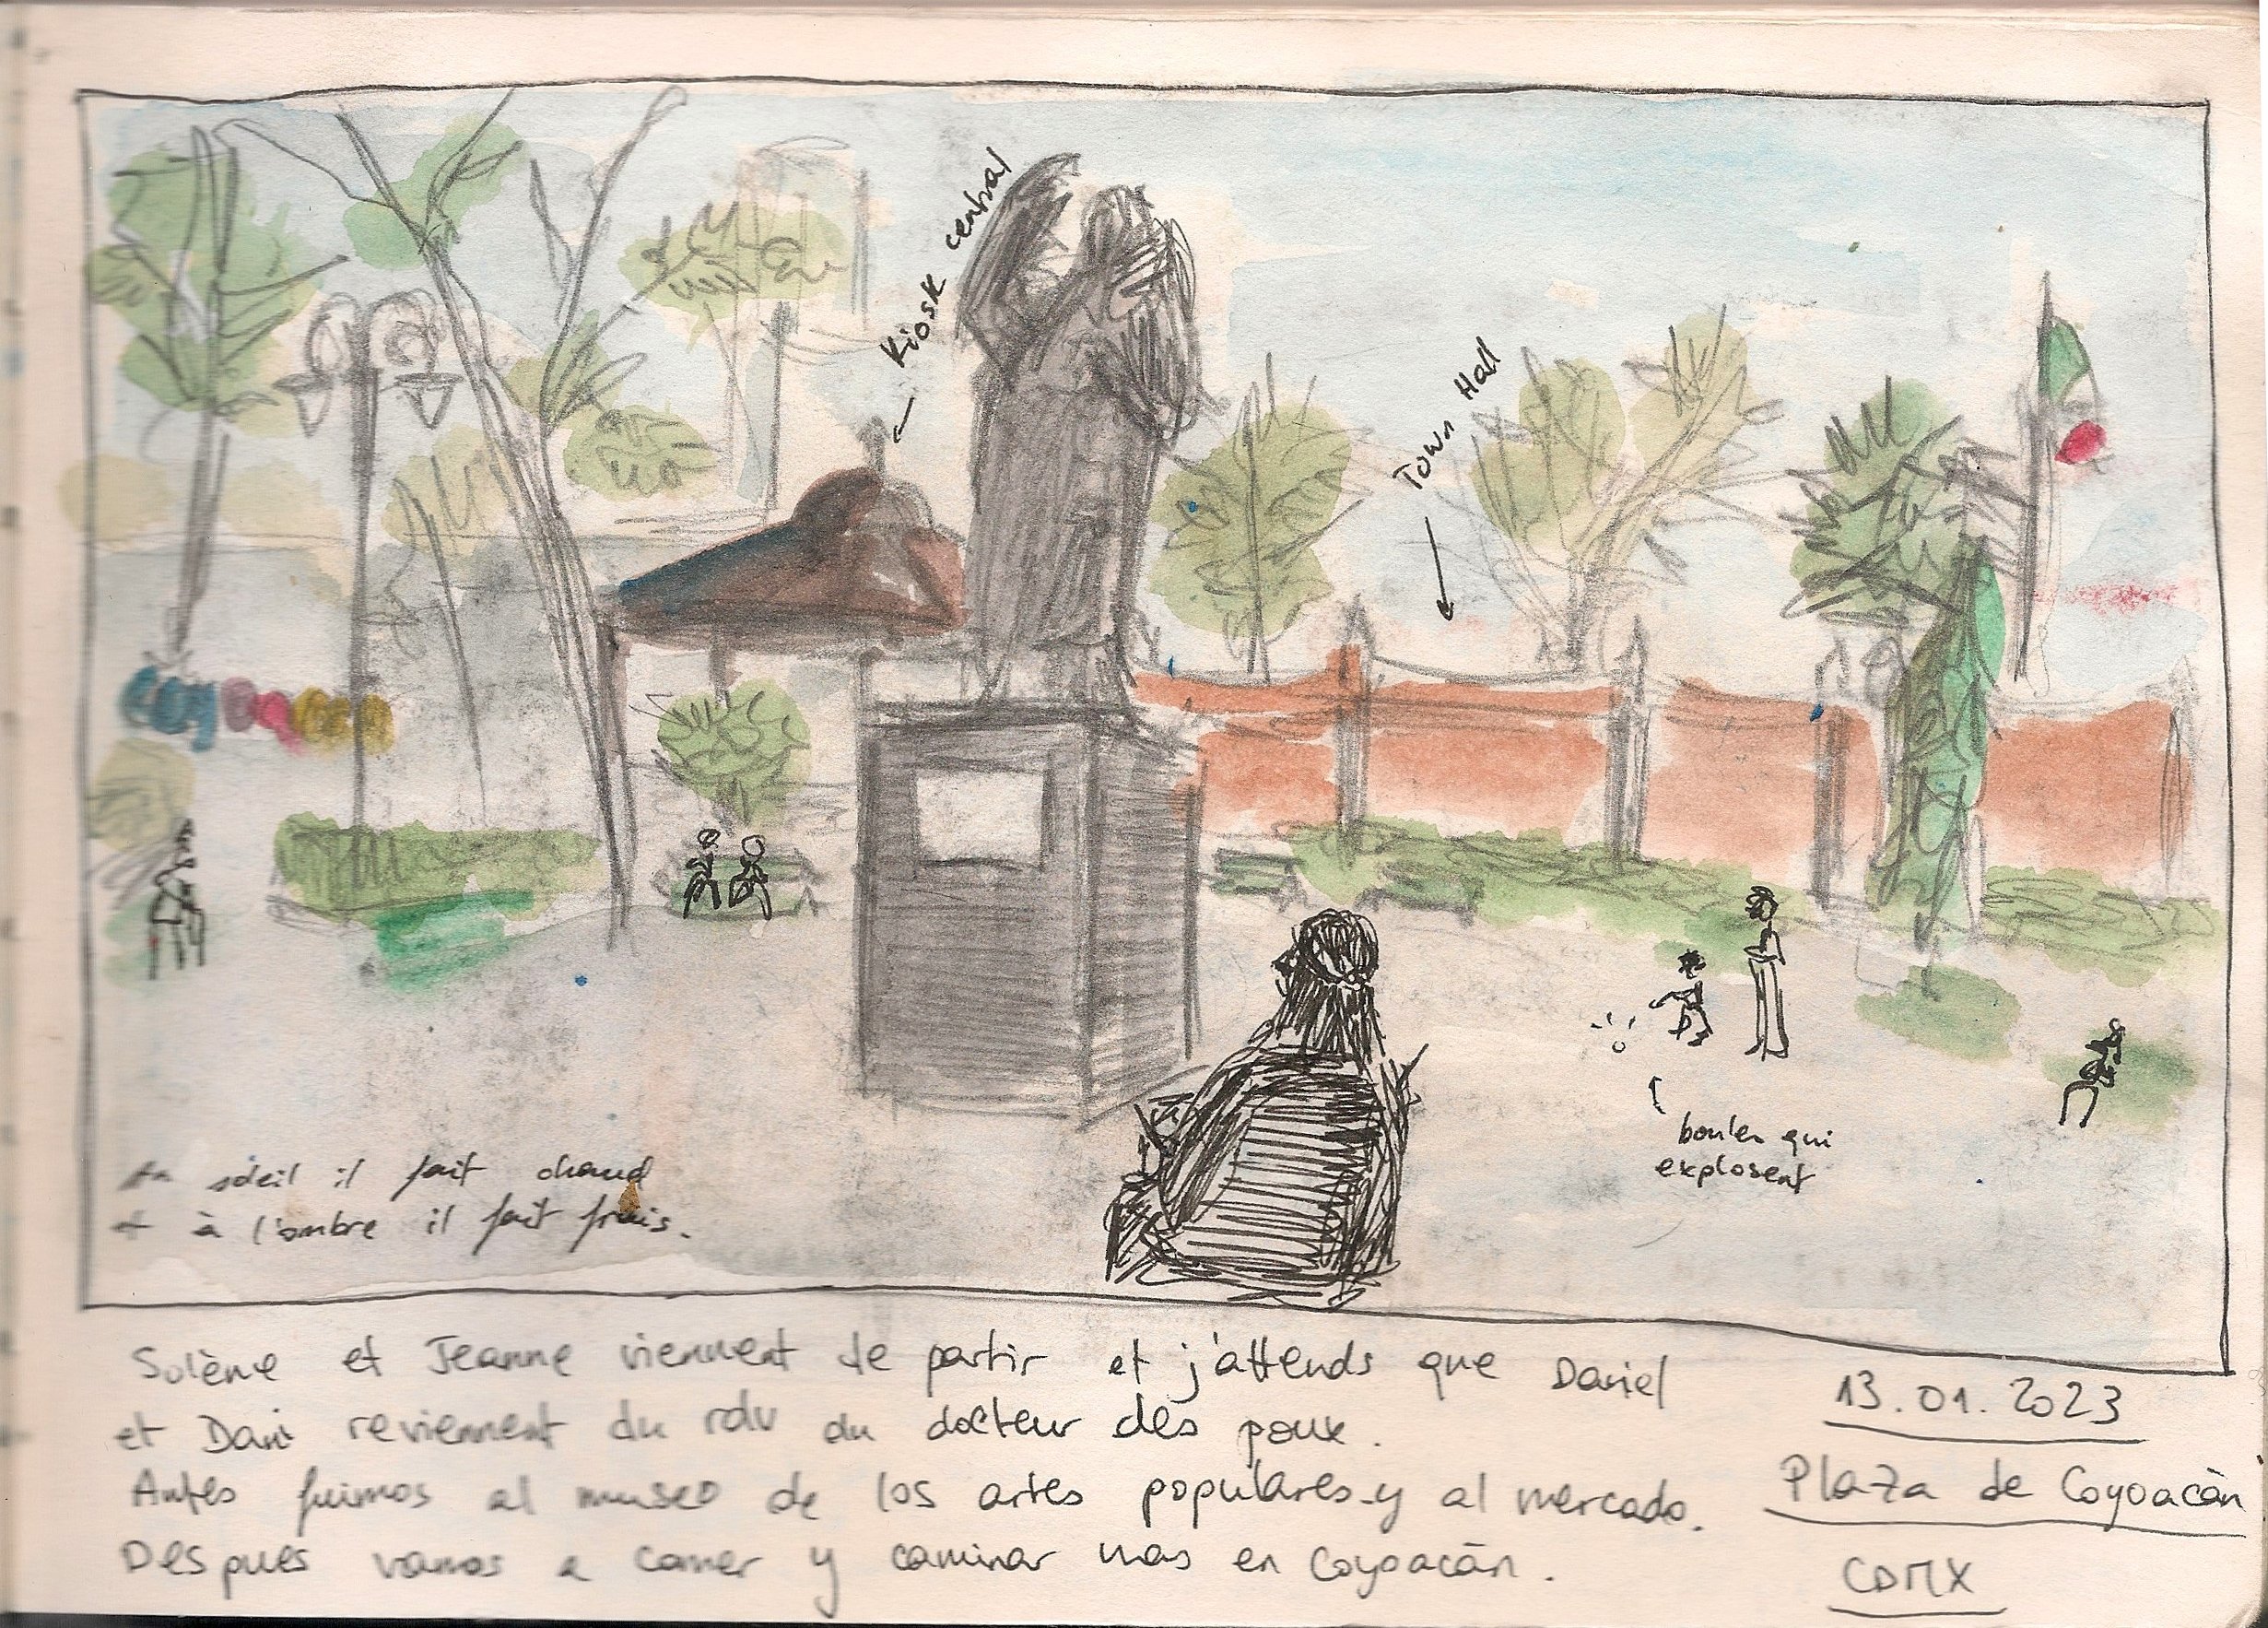 Kiosk central
Town Hall
Coyoacán
boules qui
explosent
Au soleil il fait chaud
et à l'ombre il fait frais.
Solène et Jeanne viennent de partir et j'attends que Daniel
et Dani reviennent du rdv du docteur des poux.
Antes fuimos al museo de los artes populares y al mercado.
Despues vamos a comer y caminar mas en Coyoacán.
13.01.2023
Plaza de Coyoacàn
CDMX